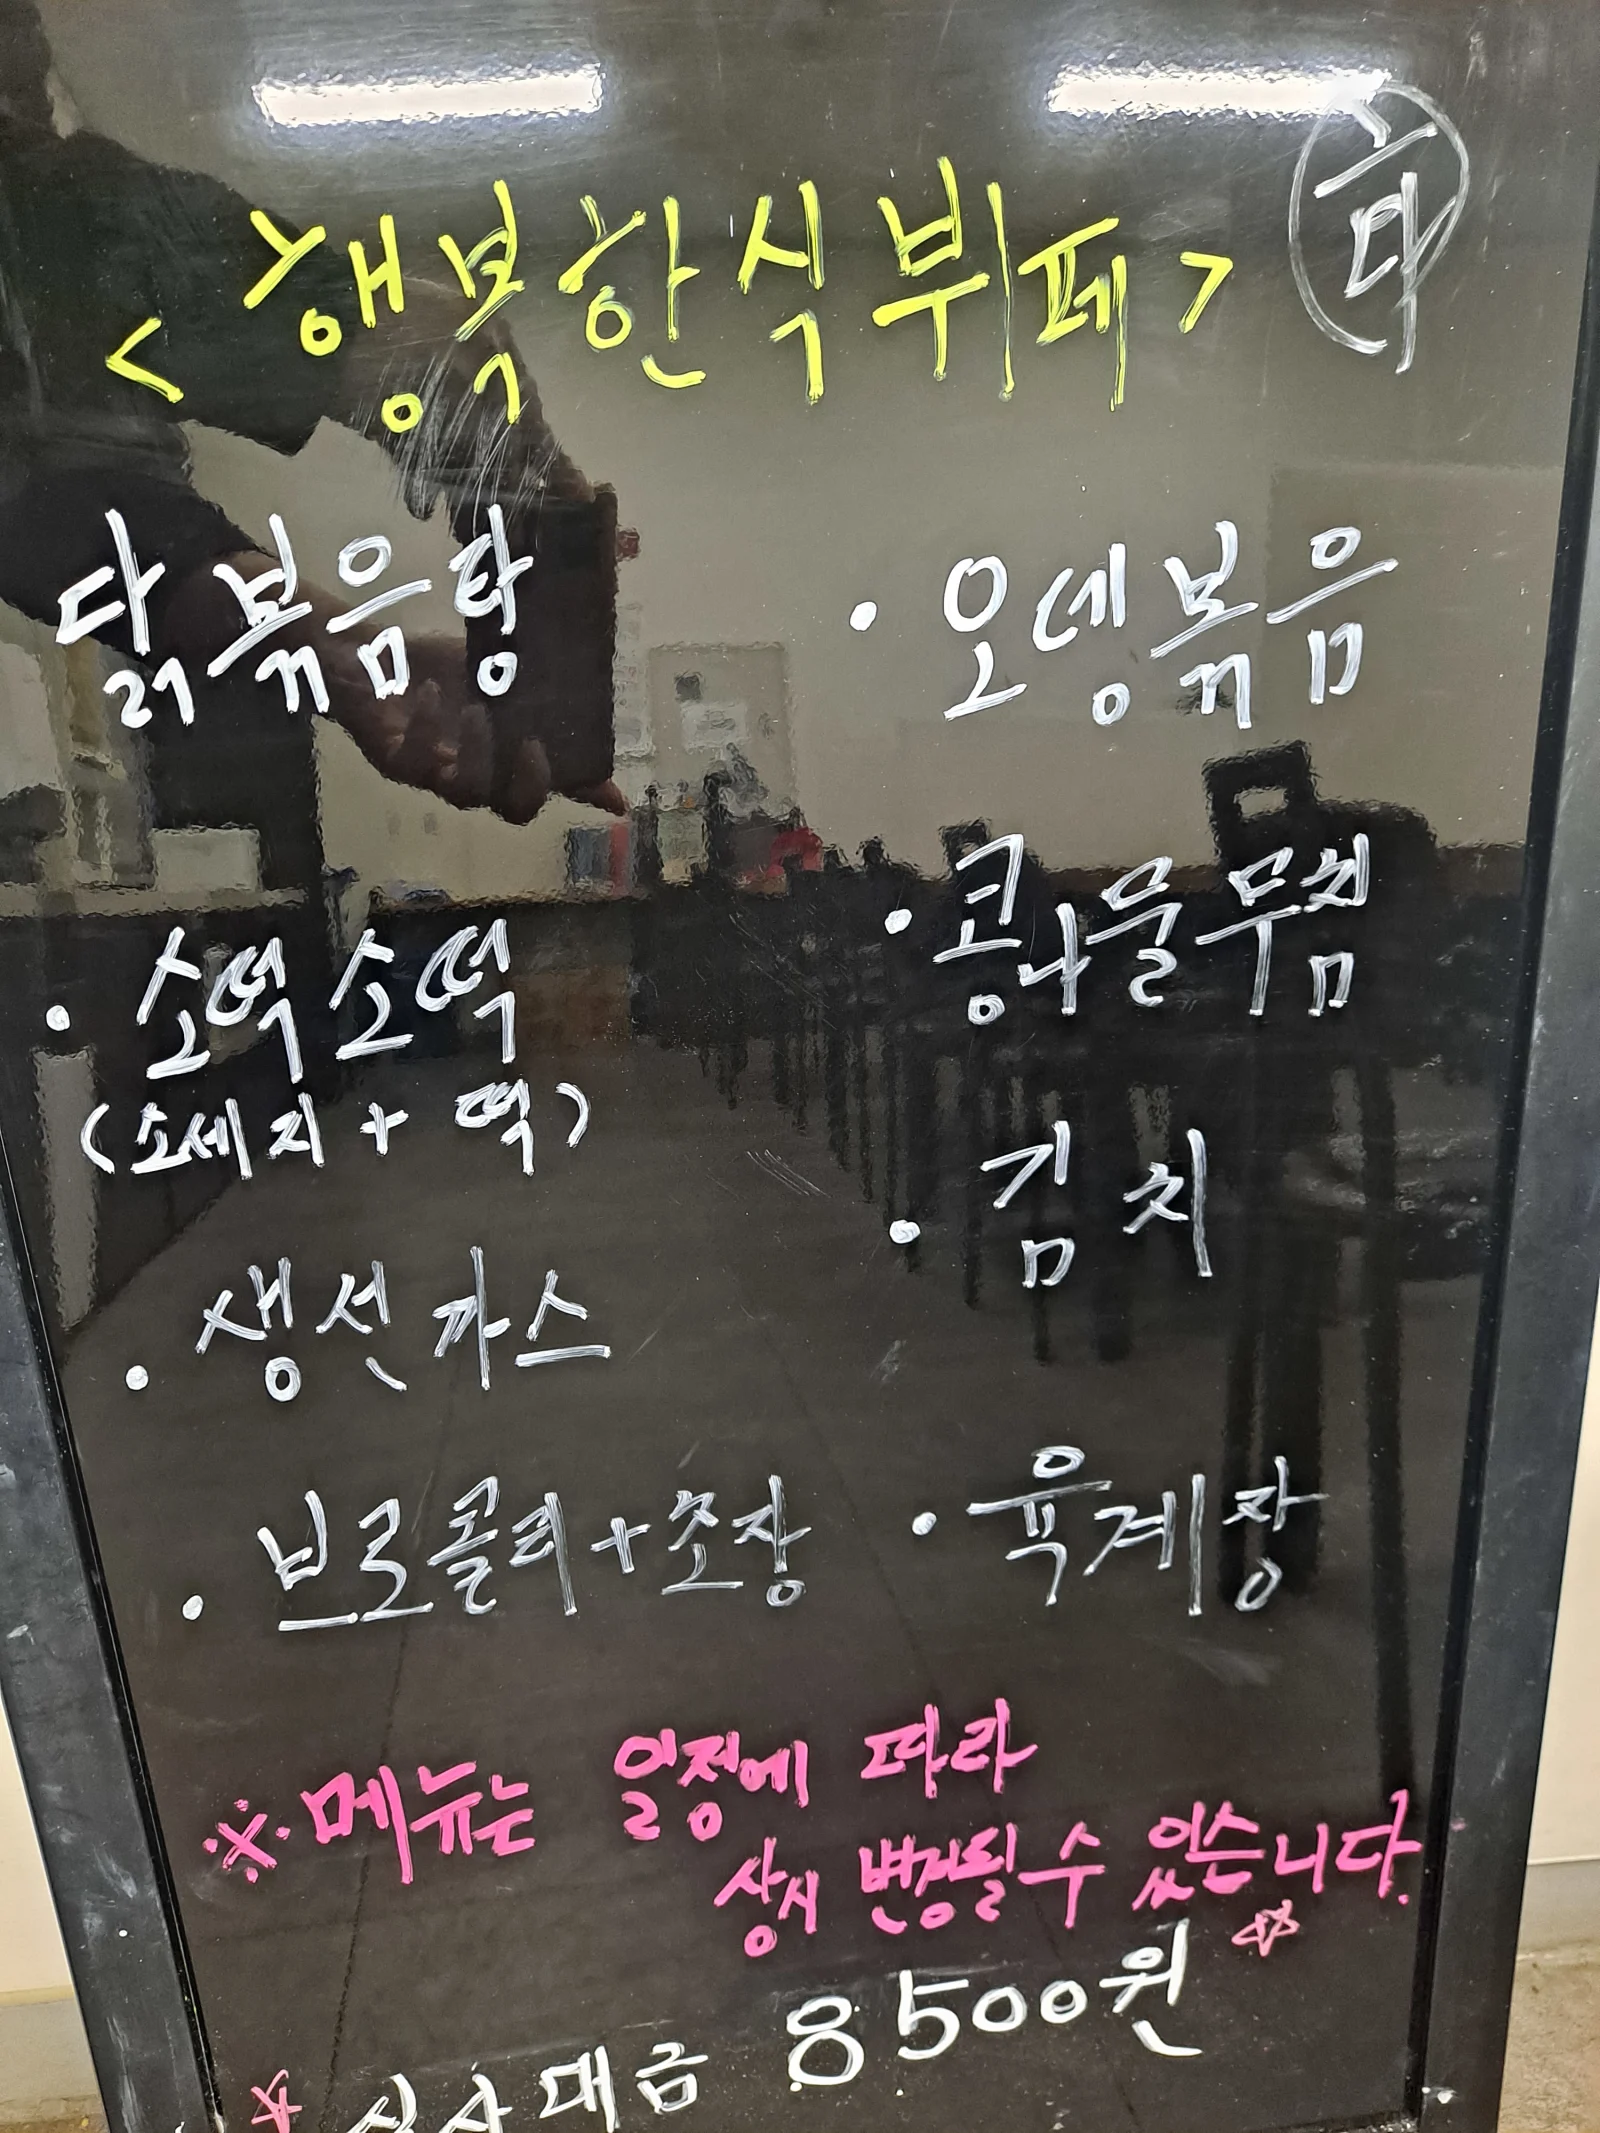 <행복한식뷔페>
닭볶음탕
· 오뎅볶음
· 소떡소떡
(소세지+떡)
· 콩나물무침
· 생선까스
· 김치
· 브로콜리+초장
· 육계장
※메뉴는 일정에 따라
상시 변경될 수 있습니다.
☆식사대금 8500원☆